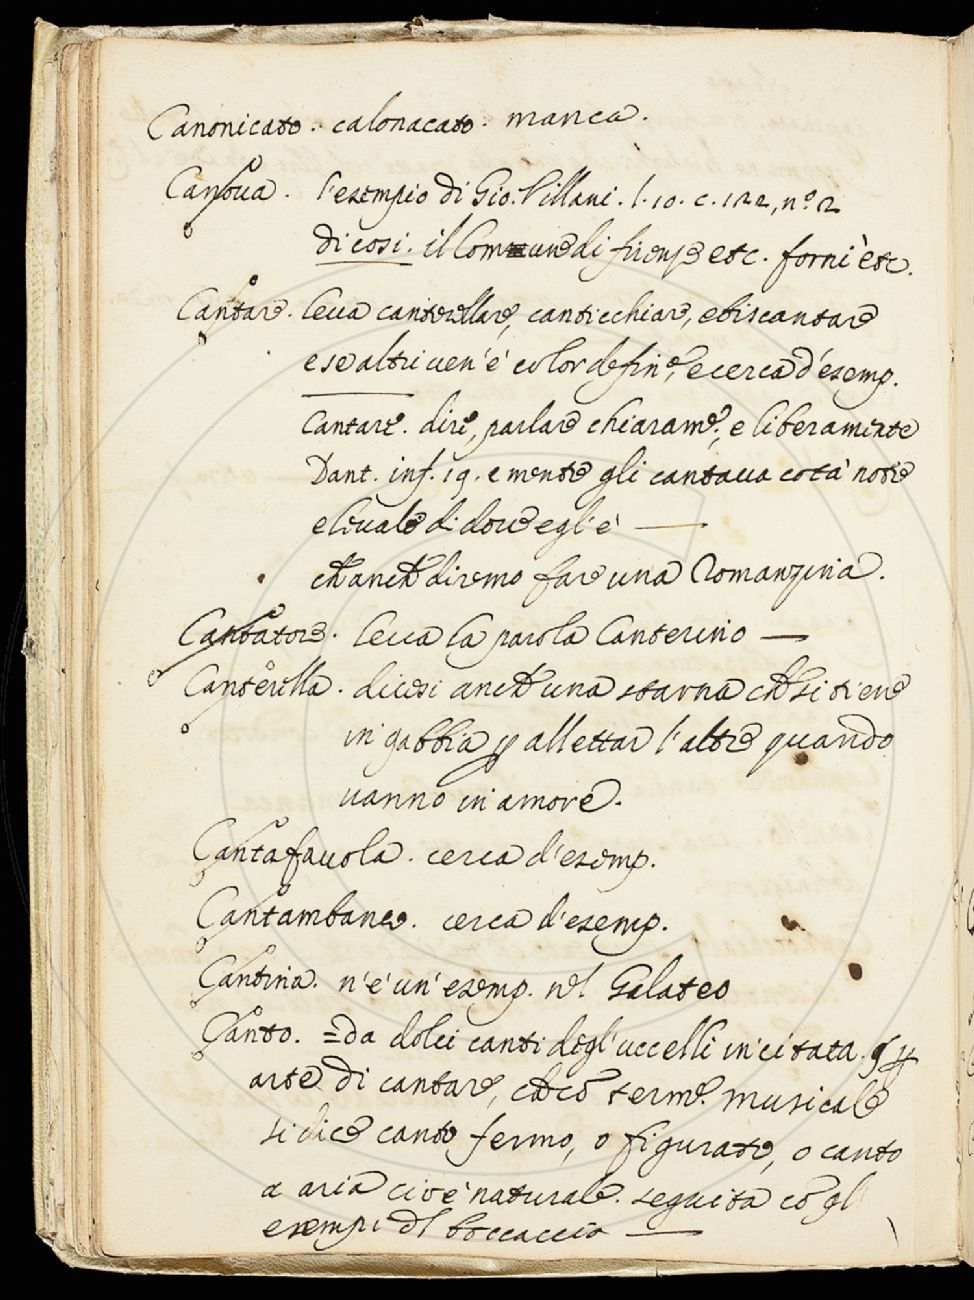 Canonicato. calonacato. manca.
Canova. l'esempio di Gio. Villani. l. 10. c. 122, n.º 2
dicosi. il Comune di firenze etc. fornì etc.
Cantare. leva canterellare, canticchiare, e biscantare
e se altri ven'è color defin.e, e cerca d'esemp.
Cantare. dire, parlare chiaram.e, e liberamente
Dant. inf. 19. e mentre gli cantava cotà note
e l'vale di dove egl'è —
ch anch diremo fare una Romanzina.
Cantatore. leva la parola Canterino —
Canterella. dicesi anch una starna ch si tiene
in gabbia p allettar l'altre quando
vanno in amore.
Cantafavola. cerca d'esemp.
Cantambanco. cerca d'esemp.
Cantina. n'è un'esemp. nel Galateo
Canto. = da dolci canti degl'uccelli incitata.
arte di cantare, ch cō term.e musicale
si dice canto fermo, o figurato, o canto
a aria cioè naturale. seguita cō gl
esempi dl boccaccio —